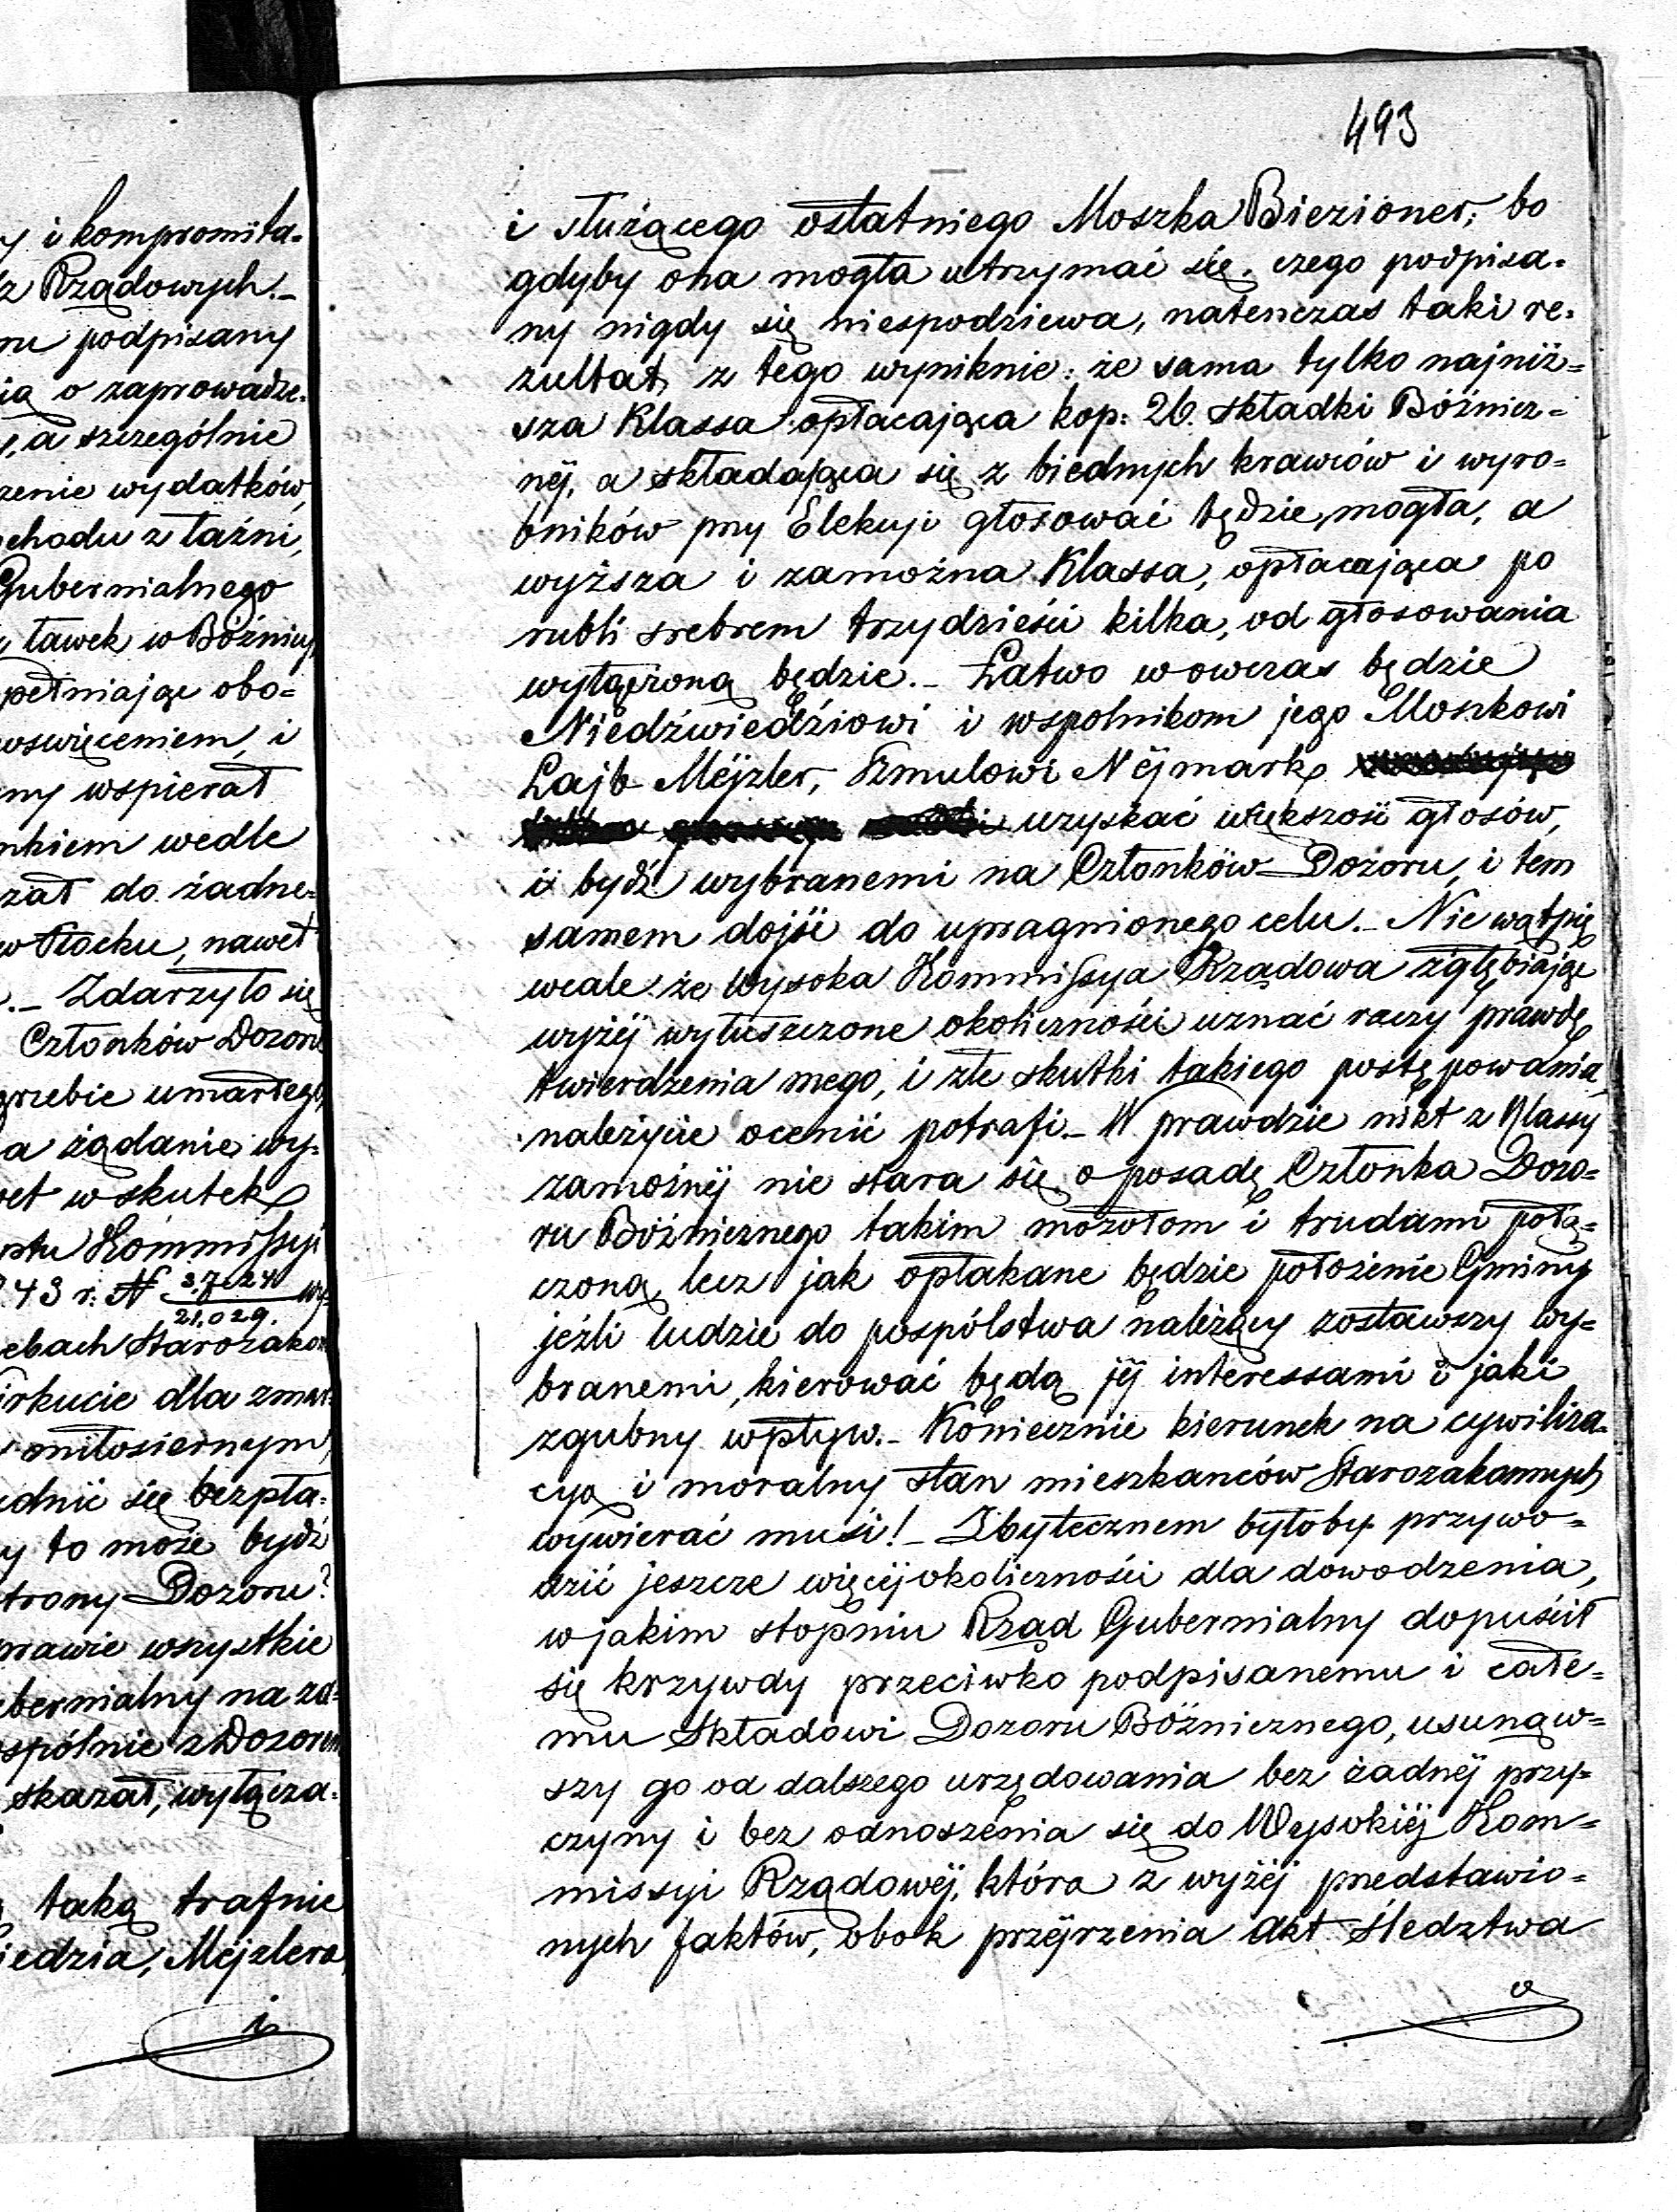 y i kompromita-
z Rządowych._
mu podpisany
ią o zaprowadze-
, a szczególnie
zenie wydatków,
chodu z łaźni,
Gubernialnego
ławek w Bóźnicy,
pełniając obo-
oswięceniem, i
ny wspierał
nkiem wedle
zał do żadne-
w Płocku, nawet
._ Zdarzyło się
Członków Dozoru
grzebie umarłego,
a żądanie wy-
et w skutek
ptu Kommissyi
43 r: N 3,7,24 wy-
21,029.
ebach Starozakon
irkucie dla zmar-
miłosiernym,
udnić się bezpła-
y to może bydź
trony Dozoru?
prawie wszystkie
bernialny na za-
spólnie z Dozorem
skazał, wyłącza-
taką trafnie
iedzia, Mejzlera,
i
493
i służącego ostatniego Moszka Biezioner; bo
gdyby ona mogła utrzymać się, czego podpisa-
ny nigdy się niespodziewa, natenczas taki re-
zultat z tego wyniknie: że sama tylko najniż-
sza Klassa opłacająca kop: 26. składki Bóźnicz-
néj, a składająca się z biednych krawców i wyro-
bników przy Elekcyi głosować będzie mogła, a
wyższa i zamożna Klassa, opłacająca po
rubli srebrem trzydzieści kilka, od głosowania
wyłączoną będzie._ Łatwo wowczas będzie
Niedźwiedźiowi i wspolnikom jego Moskowi
Lajb Méjzler, Szmulowi Néjmark
uzyskać większość głosów,
i bydź wybranemi na Członków Dozoru, i tem
samem dojść do upragnionego celu._ Nie wątpię
wcale że Wysoka Kommissya Rządowa zgłębiając
wyżéj wyłuszczone okoliczności uznać raczy prawdę
twierdzenia mego, i złe skutki takiego postępowania
należycie ocenić potrafi._ W prawdzie nikt z Klassy
zamożnéj nie stara się o posadę Członka Dozo-
ru Bóźnicznego takim mozołom i trudami połą-
czoną, lecz jak opłakane będzie położenie Gminy
jeźli ludzie do pospólstwa należący zostawszy wy-
branemi, kierować będą jéj interessami i jaki
zgubny wpływ._ Koniecznie kierunek na cywiliza-
cyą i moralny stan mieszkanców Starozakonnych
wywierać musi!_ Zbytecznem byłoby przywo-
dzić jeszcze więcéj okoliczności dla dowodzenia,
w jakim stopniu Rząd Gubernialny dopuścił
się krzywdy przeciwko podpisanemu i całe-
mu Składowi Dozoru Bóźnicznego, usunąw-
szy go od dalszego urzędowania bez żadnéj przy-
czyny i bez odnoszenia się do Wysokiéj Kom-
missyi Rządowéj, która z wyżéj przedstawio-
nych faktów, obok przéjrzenia akt śledztwa